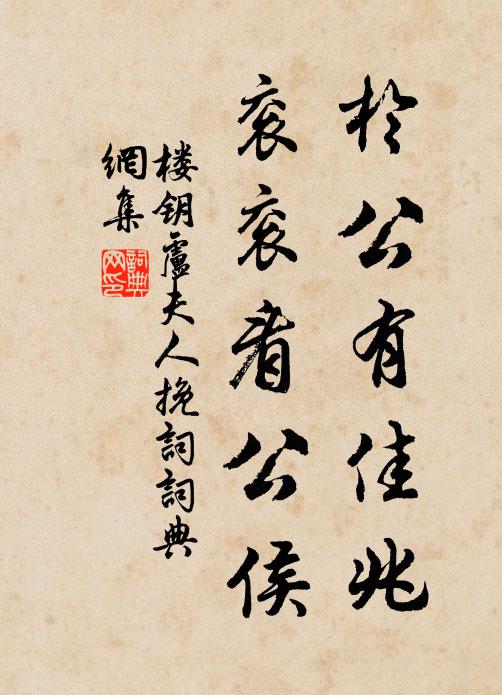 於公有佳兆
衮衮看公侯
楼钥盧夫人挽詞詞典
網集
詞典
网印